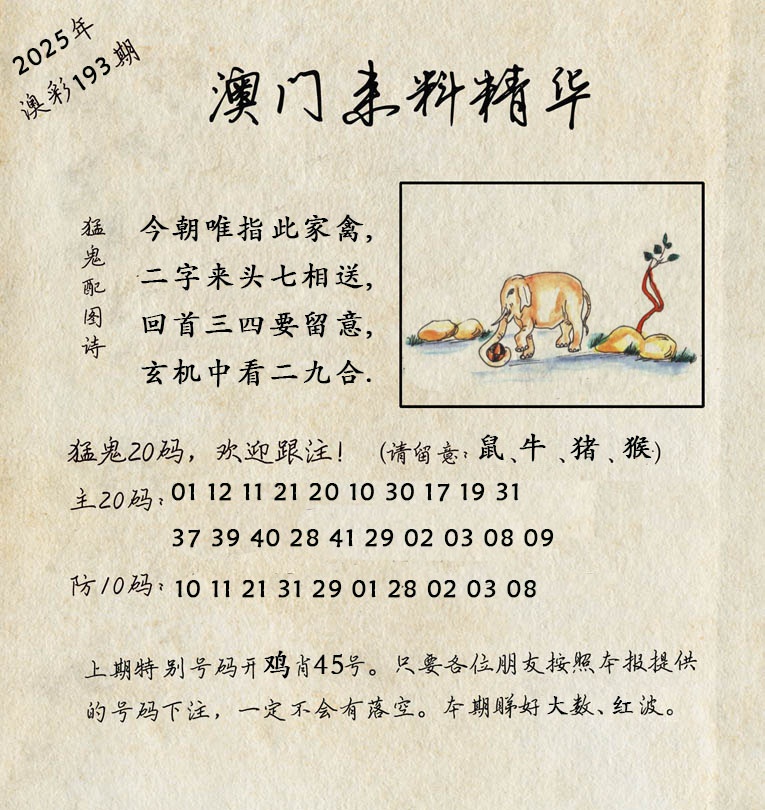 2025年
澳彩193期
澳门来料精华
猛鬼配图诗
今朝唯指此家禽,
二字来头七相送,
回首三四要留意,
玄机中看二九合.
猛鬼20码，欢迎跟注！（请留意：鼠、牛、猪、猴）
主20码：01 12 11 21 20 10 30 17 19 31
37 39 40 28 41 29 02 03 08 09
防10码：10 11 21 31 29 01 28 02 03 08
上期特别号码开鸡肖45号。只要各位朋友按照本报提供
的号码下注，一定不会有落空。本期睇好大数、红波。